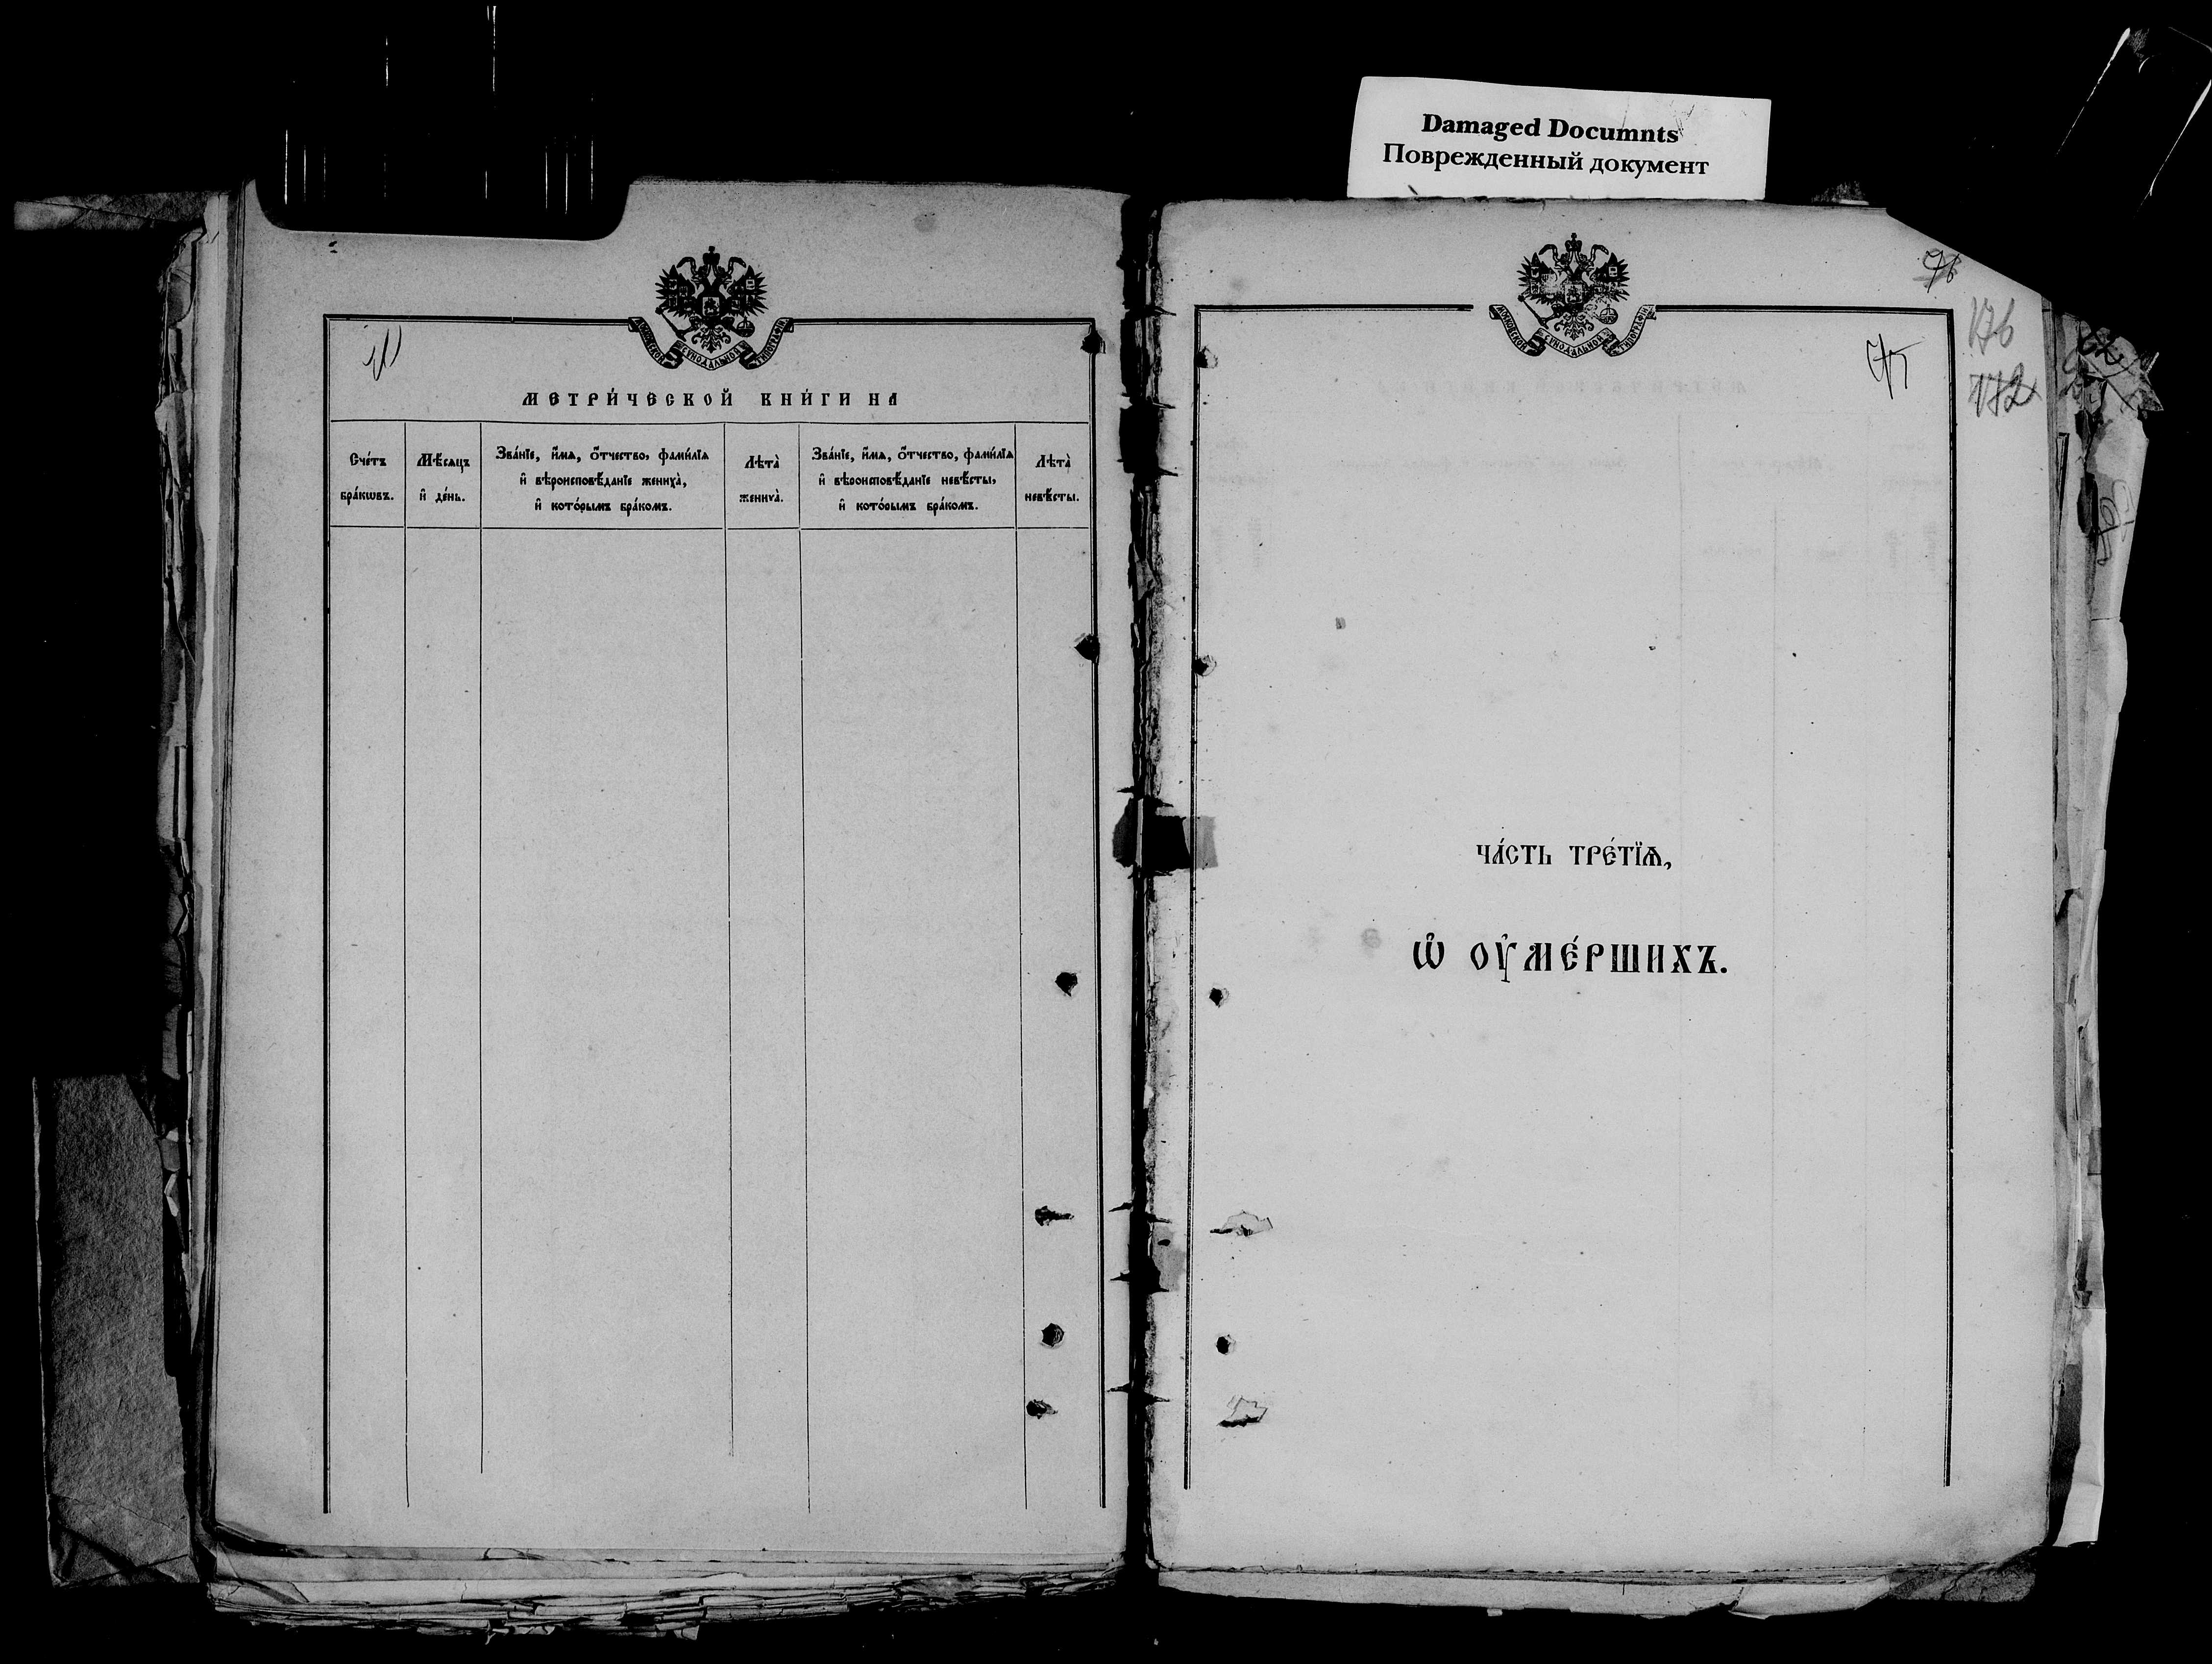 Damaged Documnts
Поврежденный документ
МОСКОВСКОЙ СѴНОДАЛЬНОЙ ТИПОГРАФІИ
МЕТРИ́ЧЕСКОЙ КНИ́ГИ НА
Сче́тъ бра́кѡвъ.
Мѣ́сяцъ и҆ де́нь.
Зва́нїе, и҆́мѧ, ѻ҆́тчество, фами́лїѧ
и҆ вѣроисповѣ́данїе жениха̀,
и҆ кото́рымъ бра́комъ.
Лѣта̀ жениха̀.
Зва́нїе, и҆́мѧ, ѻ҆́тчество, фами́лїѧ
и҆ вѣроисповѣ́данїе невѣ́сты,
и҆ кото́рымъ бра́комъ.
Лѣта̀ невѣ́сты.
МОСКОВСКОЙ СѴНОДАЛЬНОЙ ТИПОГРАФІИ
176
172
ЧА́СТЬ ТРЕ́ТЇѦ,
Ѽ ОУ҆МЕ́РШИХЪ.